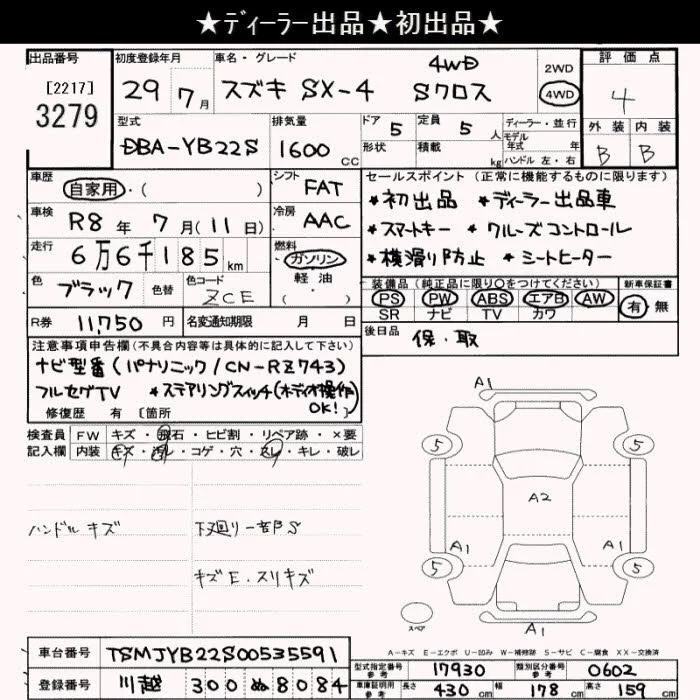 ★ディーラー出品★初出品★
出品番号
[2217]
3279
初度登録年月
29年 7月
車名・グレード
スズキ SX-4 Sクロス 4WD
2WD
4WD
評価点
4
外装 内装
B B
型式
DBA-YB22S
排気量
1600 CC
ドア 5
定員 5 人
形状
積載 kg
ディーラー・並行
モデル
年式 年
ハンドル 左・右
車歴
自家用・( )
シフト
FAT
車検
R8年 7月(11日)
冷房
AAC
走行
6万6千185km
燃料
ガソリン
軽油
( )
色
ブラック
色替
色コード
ZCE
R券 11,750円
名変通知期限 月 日
セールスポイント (正常に機能するものに限ります)
★初出品 ★ディーラー出品車
★スマートキー ★クルーズコントロール
★横滑り防止 ★シートヒーター
装備品 (純正品に限り○をつけてください)
新車保証書
PS PW ABS エアB AW
SR ナビ TV カワ
有・無
後日品
保・取
注意事項申告欄(不具合内容等は具体的に記入して下さい)
ナビ型番(パナソニック/CN-RZ743)
フルセグTV ★ステアリングスイッチ(オーディオ操作OK!)
修復歴 有 [箇所 ]
検査員
記入欄
FW キズ・飛石・ヒビ割・リペア跡・×要
内装 キズ・汚レ・コゲ・穴・スレ・キレ・破レ
ハンドル キズ
下廻り一部S
キズE.スリキズ
A1
5 5
A2
A1 A1
5 5
スペア
A1
A-キズ E-エクボ U-凹み W-補修跡 S-サビ C-腐食 XX-交換済
車台番号 TSMJYB22S00535591
登録番号 川越 300 ぬ 8084
型式指定番号
参考
17930
類別区分番号
参考
0602
車庫証明用
参考
長さ 430cm 幅 178cm 高さ 159cm